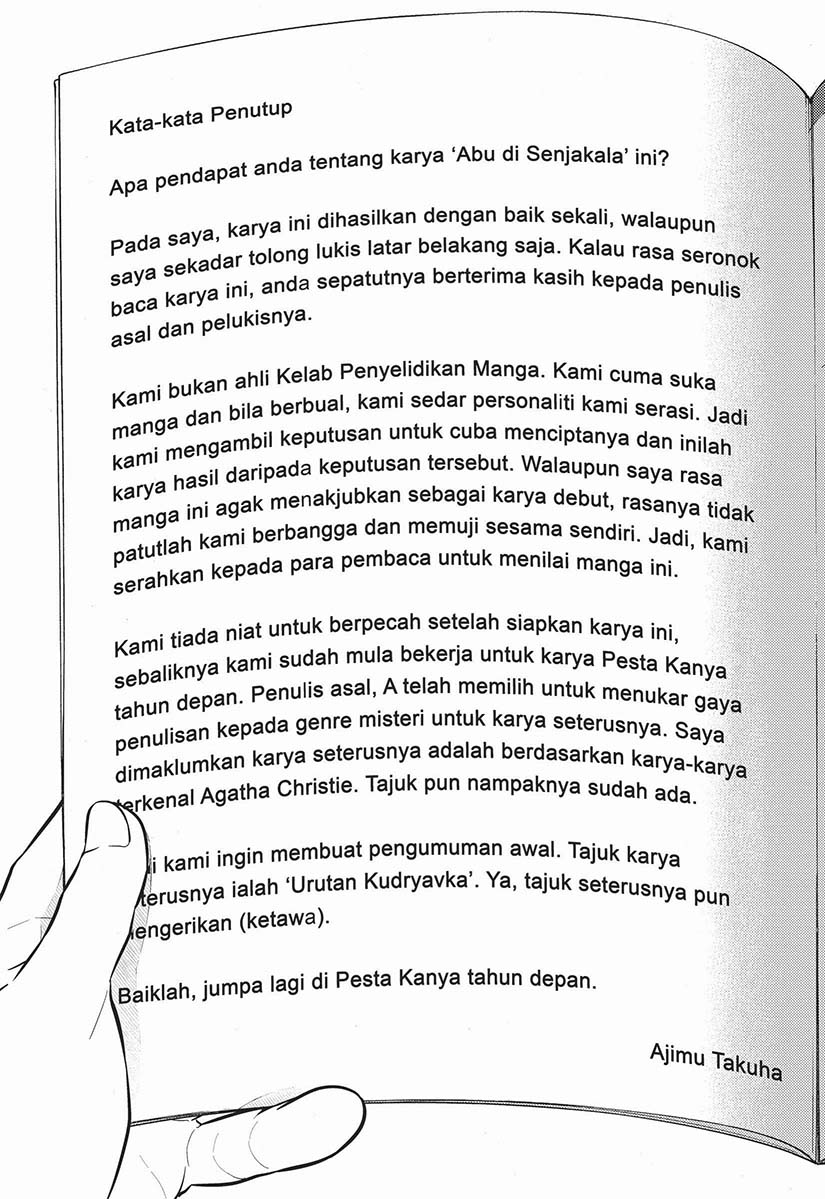 Kata-kata Penutup
Apa pendapat anda tentang karya ‘Abu di Senjakala’ ini?
Pada saya, karya ini dihasilkan dengan baik sekali, walaupun
saya sekadar tolong lukis latar belakang saja. Kalau rasa seronok
baca karya ini, anda sepatutnya berterima kasih kepada penulis
asal dan pelukisnya.
Kami bukan ahli Kelab Penyelidikan Manga. Kami cuma suka
manga dan bila berbual, kami sedar personaliti kami serasi. Jadi
kami mengambil keputusan untuk cuba menciptanya dan inilah
karya hasil daripada keputusan tersebut. Walaupun saya rasa
manga ini agak menakjubkan sebagai karya debut, rasanya tidak
patutlah kami berbangga dan memuji sesama sendiri. Jadi, kami
serahkan kepada para pembaca untuk menilai manga ini.
Kami tiada niat untuk berpecah setelah siapkan karya ini,
sebaliknya kami sudah mula bekerja untuk karya Pesta Kanya
tahun depan. Penulis asal, A telah memilih untuk menukar gaya
penulisan kepada genre misteri untuk karya seterusnya. Saya
dimaklumkan karya seterusnya adalah berdasarkan karya-karya
terkenal Agatha Christie. Tajuk pun nampaknya sudah ada.
i kami ingin membuat pengumuman awal. Tajuk karya
terusnya ialah ‘Urutan Kudryavka’. Ya, tajuk seterusnya pun
engerikan (ketawa).
Baiklah, jumpa lagi di Pesta Kanya tahun depan.
Ajimu Takuha